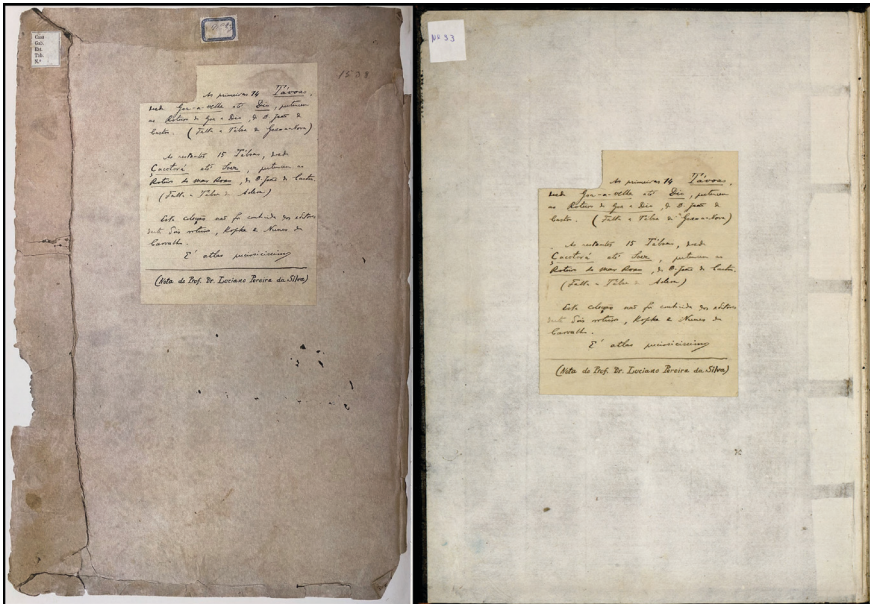 Casa
Gab.
Est.
Tab.
N.º
1538
As primeiras 14 Távoas,
desde Goa-a-velha até Dio, pertencem
ao Roteiro de Goa a Dio, de D. João de
Castro. (Falta a Tábua de Goa-a-nova)
As restantes 15 Tábuas, desde
Cacotorá até Suez, pertencem ao
Roteiro do Mar Roxo, de D. João de Castro.
(Falta a Tábua de Adem)
Esta coleção não foi conhecida dos editores
deste Dois roteiros, Kopke e Nunes de
Carvalho.
É atlas preciosíssimo
(Nota do Prof. Dr. Luciano Pereira da Silva)
33
As primeiras 14 Távoas,
desde Goa-a-velha até Dio, pertencem
ao Roteiro de Goa a Dio, de D. João de
Castro. (Falta a Tábua de Goa-a-nova)
As restantes 15 Tábuas, desde
Cacotorá até Suez, pertencem ao
Roteiro do Mar Roxo, de D. João de Castro.
(Falta a Tábua de Adem)
Esta coleção não foi conhecida dos editores
deste Dois roteiros, Kopke e Nunes de
Carvalho.
É atlas preciosíssimo
(Nota do Prof. Dr. Luciano Pereira da Silva)